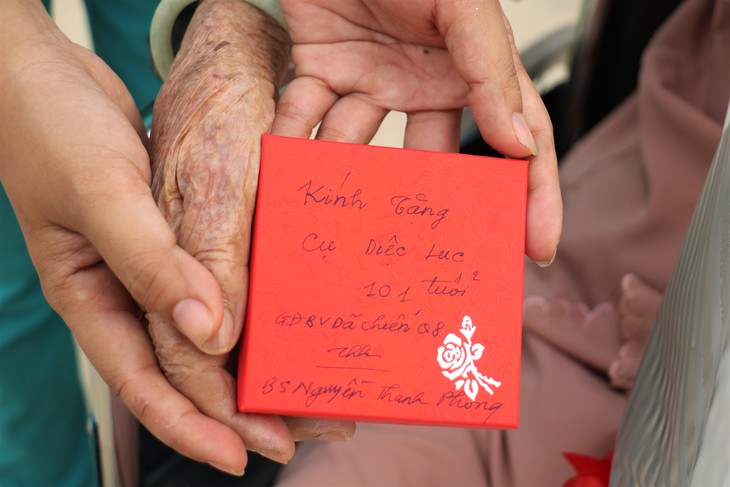 Kính Tặng
Cụ Diệc Lục
101 tuổi
GĐBV Dã chiến Q8
BS. Nguyễn Thanh Phong